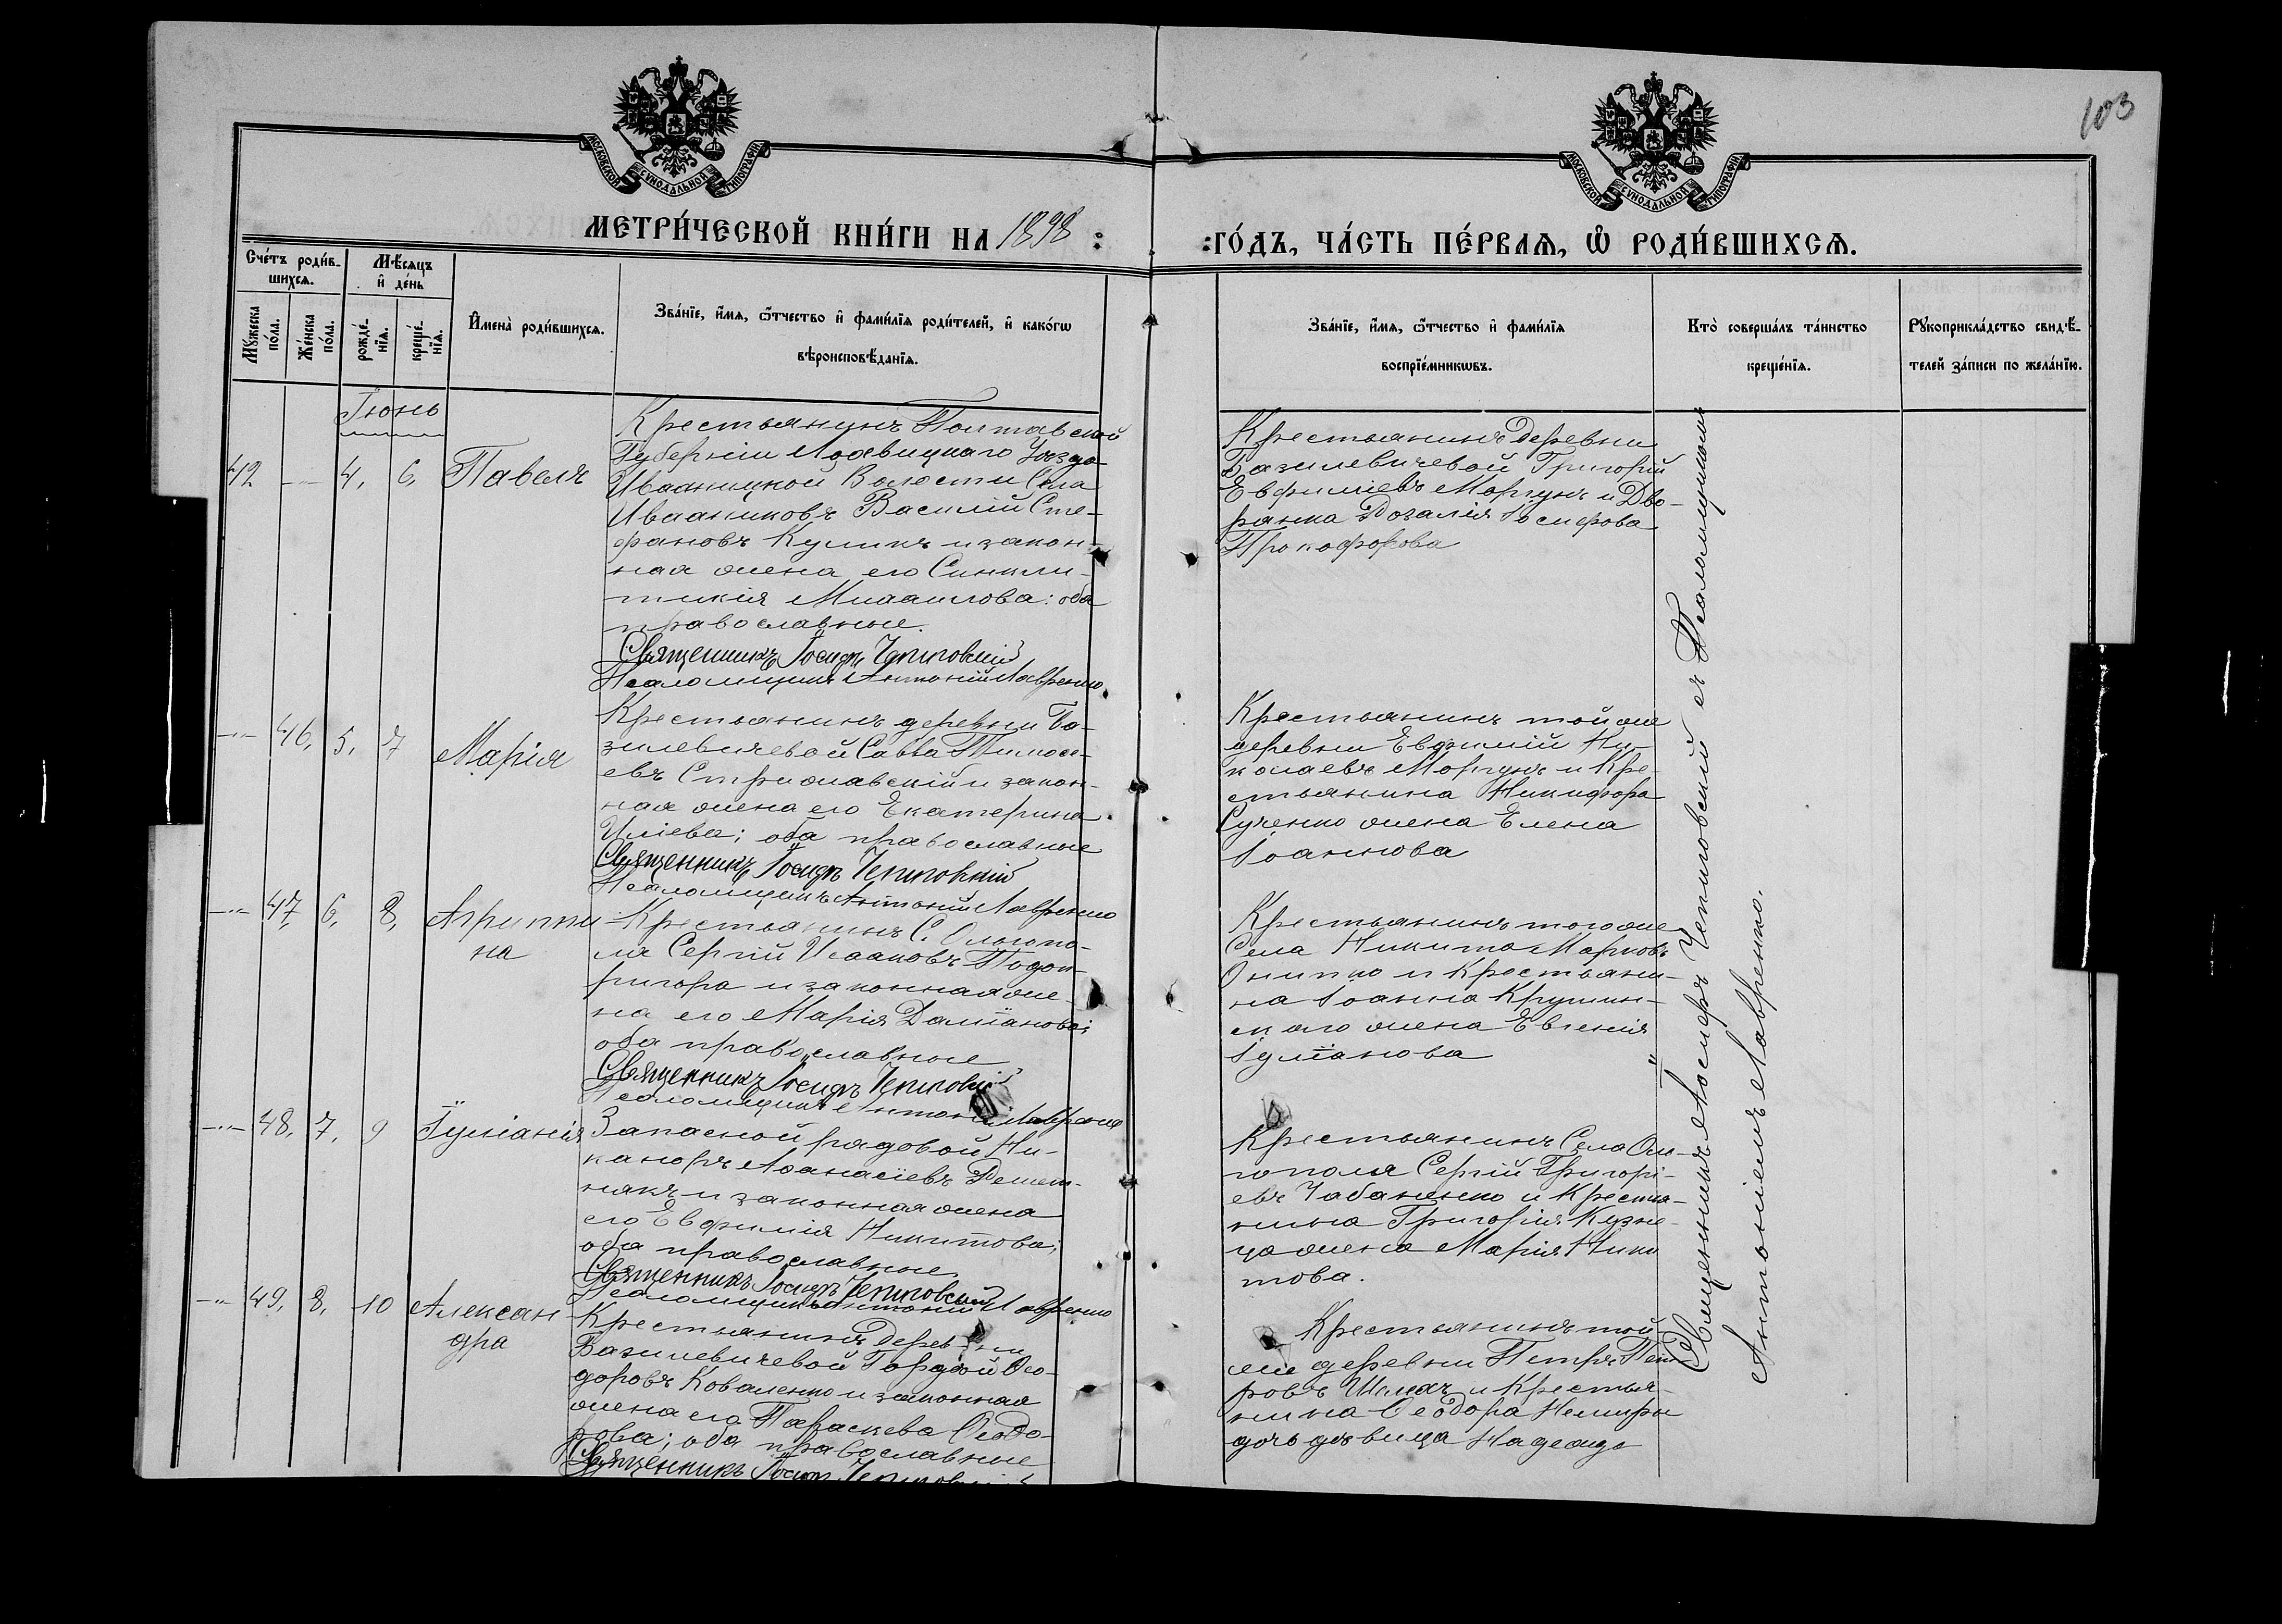 103
МОСКОВСКОЙ СѴНОДАЛЬНОЙ ТИПОГРАФІИ
МОСКОВСКОЙ СѴНОДАЛЬНОЙ ТИПОГРАФІИ
МЕТРИ́ЧЕСКОЙ КНИ́ГИ НА 1898
ГО́ДЪ, ЧА́СТЬ ПЕ́РВАѦ, Ѡ РОДИ́ВШИХСѦ.
Сче́тъ роди́в-
шихсѧ.
Мѣ́сѧцъ
и҆ де́нь
Мꙋ́жеска
по́ла.
Же́нска
по́ла.
рожде́-
нїѧ.
креще́-
нїѧ.
И҆мена̀ роди́вшихсѧ.
Зва́нїе, и҆́мѧ, ѻ҆́тчество и҆ фами́лїѧ роди́телей, и҆ како́гѡ
вѣроисповѣ́данїѧ.
Зва́нїе, и҆́мѧ, ѻ҆́тчество и҆ фами́лїѧ
воспрїе́мникѡвъ.
Кто̀ соверша́лъ та́инство
креще́нїѧ.
Рꙋкоприкла́дство свидѣ́-
телей за́писи по жела́нїю.
Іюнь
42 - - 4, 6, Павелъ
Крестьянинъ Полтавской
Губерніи Лохвицкаго Уѣзда
Волости Села
Василій Сте-
фановъ Куликъ и закон-
ная жена его Синкли-
тикія Михаилова: оба
православные.
Священникъ Іосифъ Чепиговскій
Псаломщикъ Антоній Лавренко
Крестьянинъ деревни
Базилевичевой Григорій
Евфиміевъ Моргунъ и Дво-
рянка Розалія Іосифова
- - 46, 5, 7 Марія
Крестьянинъ деревни Ба-
зилевичевой Савва Тимоѳе-
евъ Стрижавскій и закон-
ная жена его Екатерина
Иліева; оба православные
Священникъ Іосифъ Чепиговскій
Псаломщикъ Антоній Лавренко
Крестьянинъ той же
деревни Евфимій Ни-
колаевъ Моргунъ и Кре-
стьянина Никифора
Сученко жена Елена
Іоаннова
- - 47, 6, 8, Агриппи
на
Крестьянинъ С. Ольгопо-
ля Сергій Исааковъ Подоп-
ригора и законная же-
на его Марія Даміанова;
оба православные
Священникъ Іосифъ Чепиговскій
Псаломщикъ Антоній Лавренко
Крестьянинъ того же
Села Никита Марковъ
Онипко и Крестьяни-
на Іоанна Крушин-
скаго жена Евгенія
Іуліанова
- - 48, 7, 9 Іуліанія
Запасной рядовой Ни-
каноръ Аѳанасіевъ Решет-
някъ и законная жена
его Евфимія Никитова;
оба православные
Священникъ Іосифъ Чепиговскій
Псаломщикъ Антоній Лавренко
Крестьянинъ Села Оль-
гополя Сергій Григорі-
евъ Чабаненко и Крестья-
нина Григорія Кузне-
ца жена Марія Ники
това.
- - 49, 8, 10 Алексан
дра
Крестьянинъ Деревни
Базилевичевой Гордій Ѳео-
доровъ Коваленко и законная
жена его Параскева Ѳеодо-
рова; оба православные
Священникъ Іосифъ Чепиговскій
Крестьянинъ той
же деревни Петръ Пет-
ровъ Шляхъ и Крестья-
нина Ѳеодора Немиры
дочь дѣвица Надежда
Священникъ Іосифъ Чепиговскій съ Псаломщикомъ
Антоніемъ Лавренко.